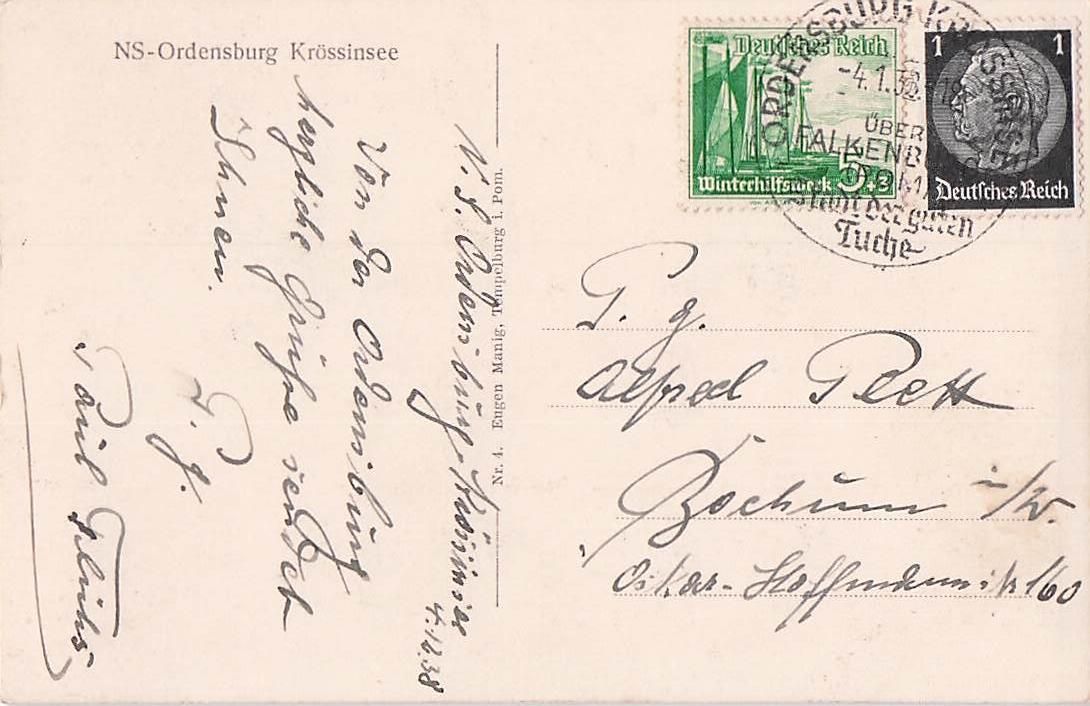 NS-Ordensburg Krössinsee
N. S. Ordensburg-Krössinsee
4.12.38
Von der Ordensburg
herzliche Grüße sendet
Ihnen.
P. g.
Paul
Nr. 4. Eugen Manig, Tempelburg i. Pom.
Deutsches Reich
Winterhilfswerk 5+3
1 1
Deutsches Reich
ORDENSBURG KRÖSSINSEE
ÜBER
FALKENBU
(POM
Stadt der guten
Tuche
P. g.
Alfred
Bochum i/W.
Oskar-Hoffmannstr 160